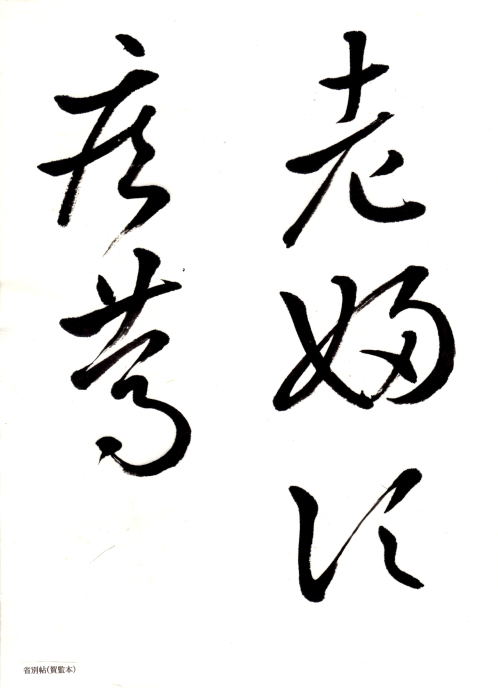 老婦頃
疾篤
省別帖(賀監本)